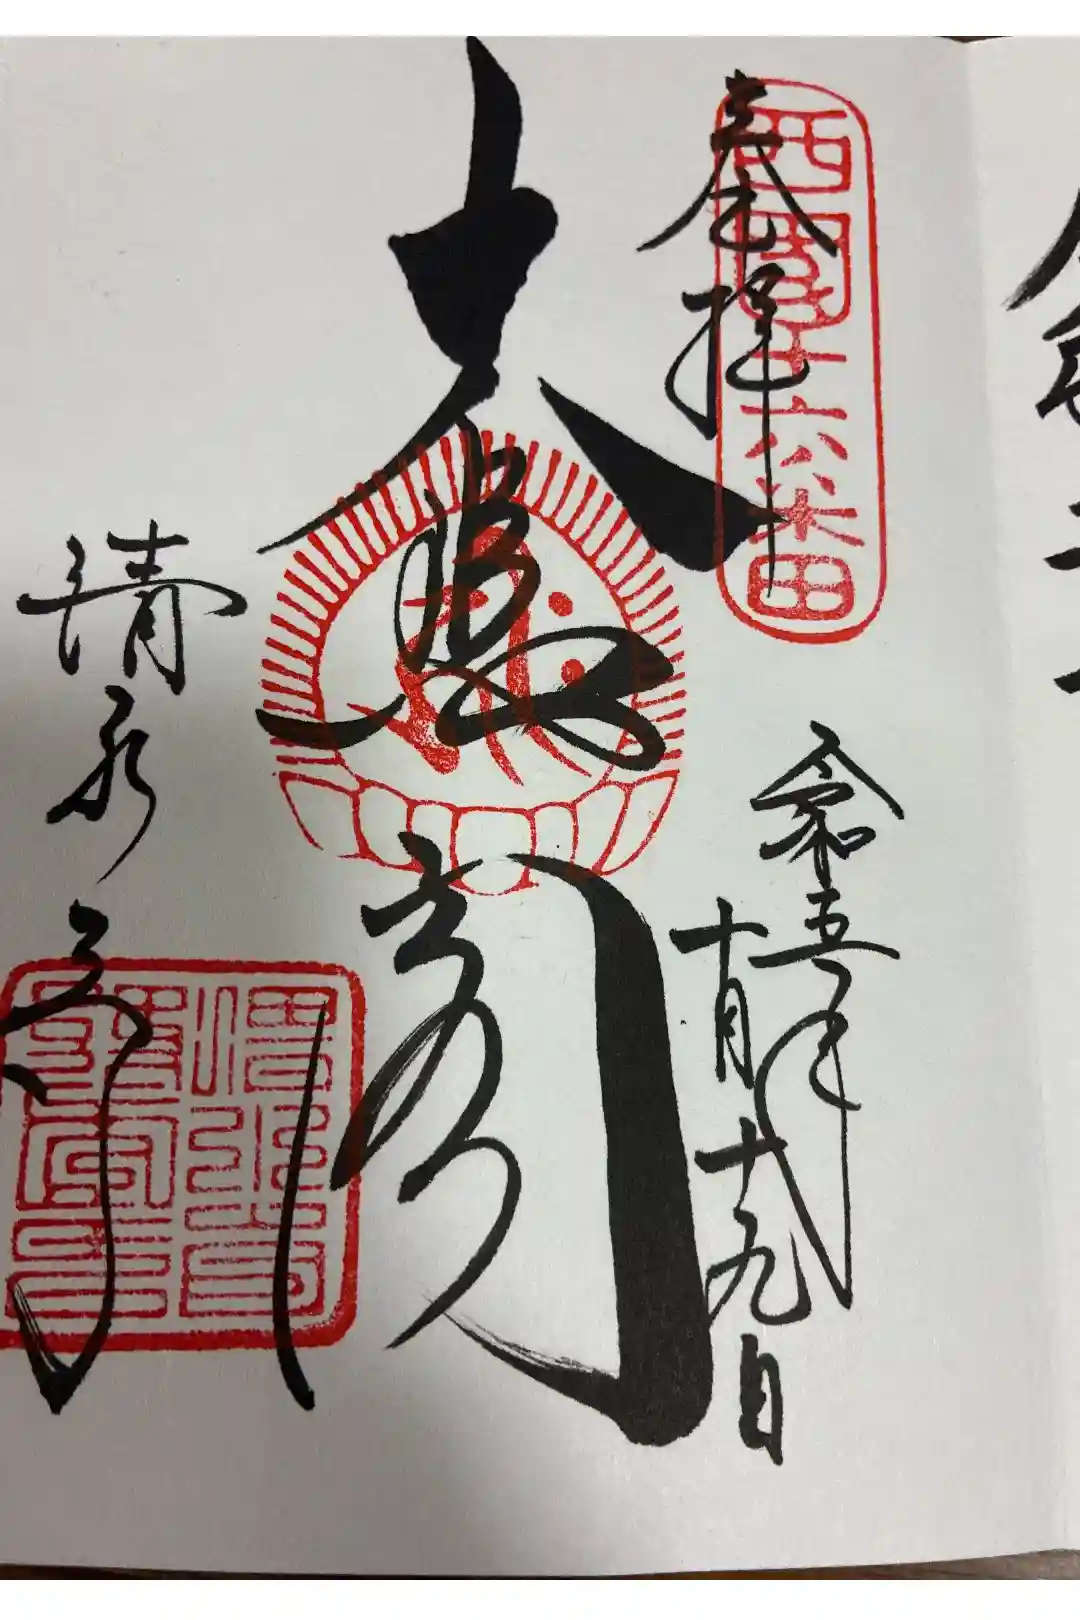 奉拝
西国十六番
令和五年
十月十九日
大悲閣
清水寺